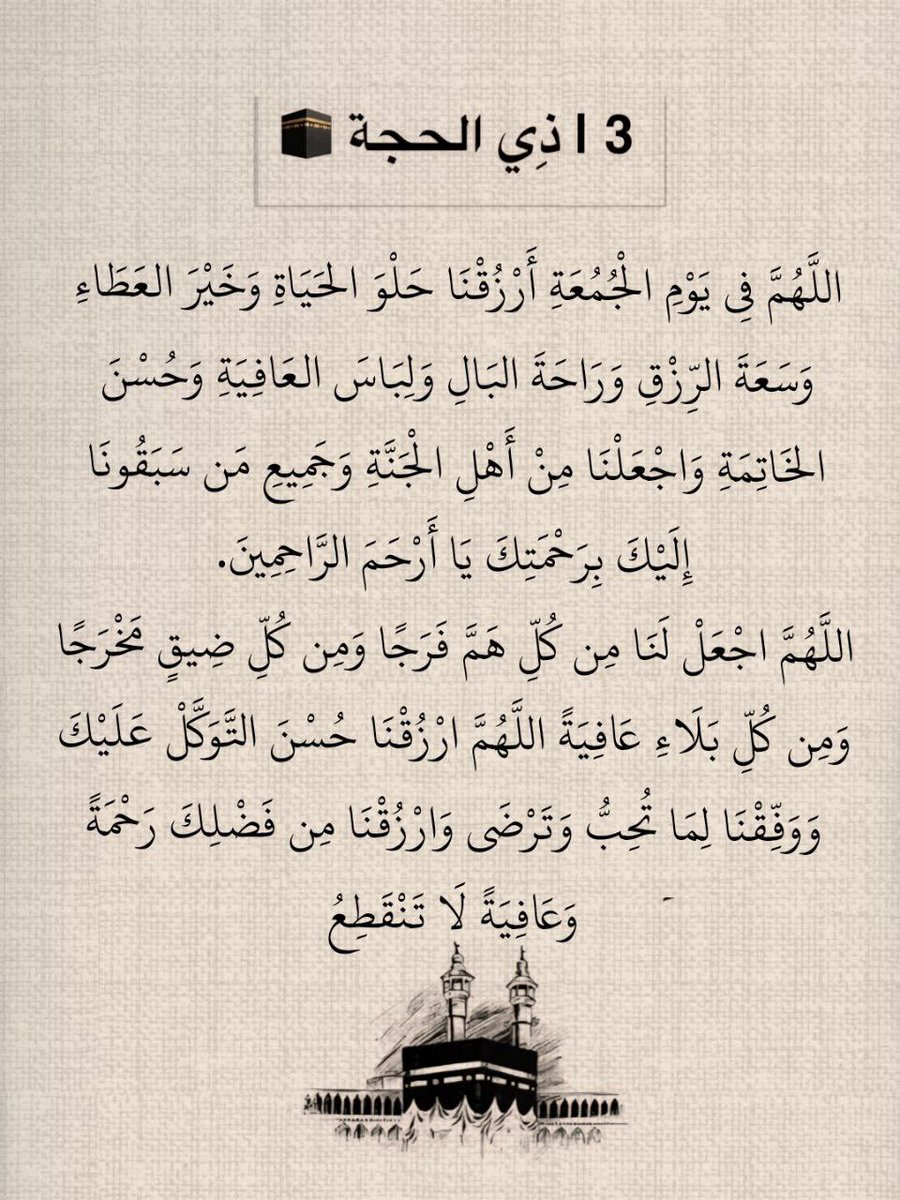 3 | ذِي الحجة 🕋
اللَّهُمَّ فِي يَوْمِ الْجُمُعَةِ أَرْزُقْنَا حَلْوَ الحَيَاةِ وَخَيْرَ العَطَاءِ
وَسَعَةَ الرِّزْقِ وَرَاحَةَ البَالِ وَلِبَاسَ العَافِيَةِ وَحُسْنَ
الخَاتِمَةِ وَاجْعَلْنَا مِنْ أَهْلِ الْجَنَّةِ وَجَمِيعِ مَن سَبَقُونَا
إِلَيْكَ بِرَحْمَتِكَ يَا أَرْحَمَ الرَّاحِمِينَ.
اللَّهُمَّ اجْعَلْ لَنَا مِن كُلِّ هَمَّ فَرَجًا وَمِن كُلِّ ضِيقٍ مَخْرَجًا
وَمِن كُلِّ بَلَاءِ عَافِيَةً اللَّهُمَّ ارْزُقْنَا حُسْنَ التَّوَكَّلْ عَلَيْكَ
وَوَفِّقْنَا لِمَا تُحِبُّ وَتَرْضَى وَارْزُقْنَا مِن فَضْلِكَ رَحْمَةً
وَعَافِيَةً لَا تَنْقَطِعُ